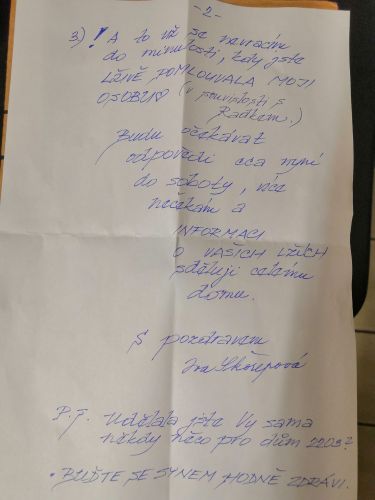 - 2 -
3) ! A to už se nevracím
do minulosti, kdy jste
LŽIVĚ POMLOUVALA MOJI
OSOBU (v souvislosti s
Radkem.)
Budu očekávat
odpovědi cca nyní
do soboty, více
nečekám a
INFORMACI
O VAŠICH LŽÍCH
sděluji celému
domu.
S pozdravem
P.S. Udělala jste Vy sama
někdy něco pro dům 2203?
• BUĎTE SE SYNEM HODNĚ ZDRÁVI.